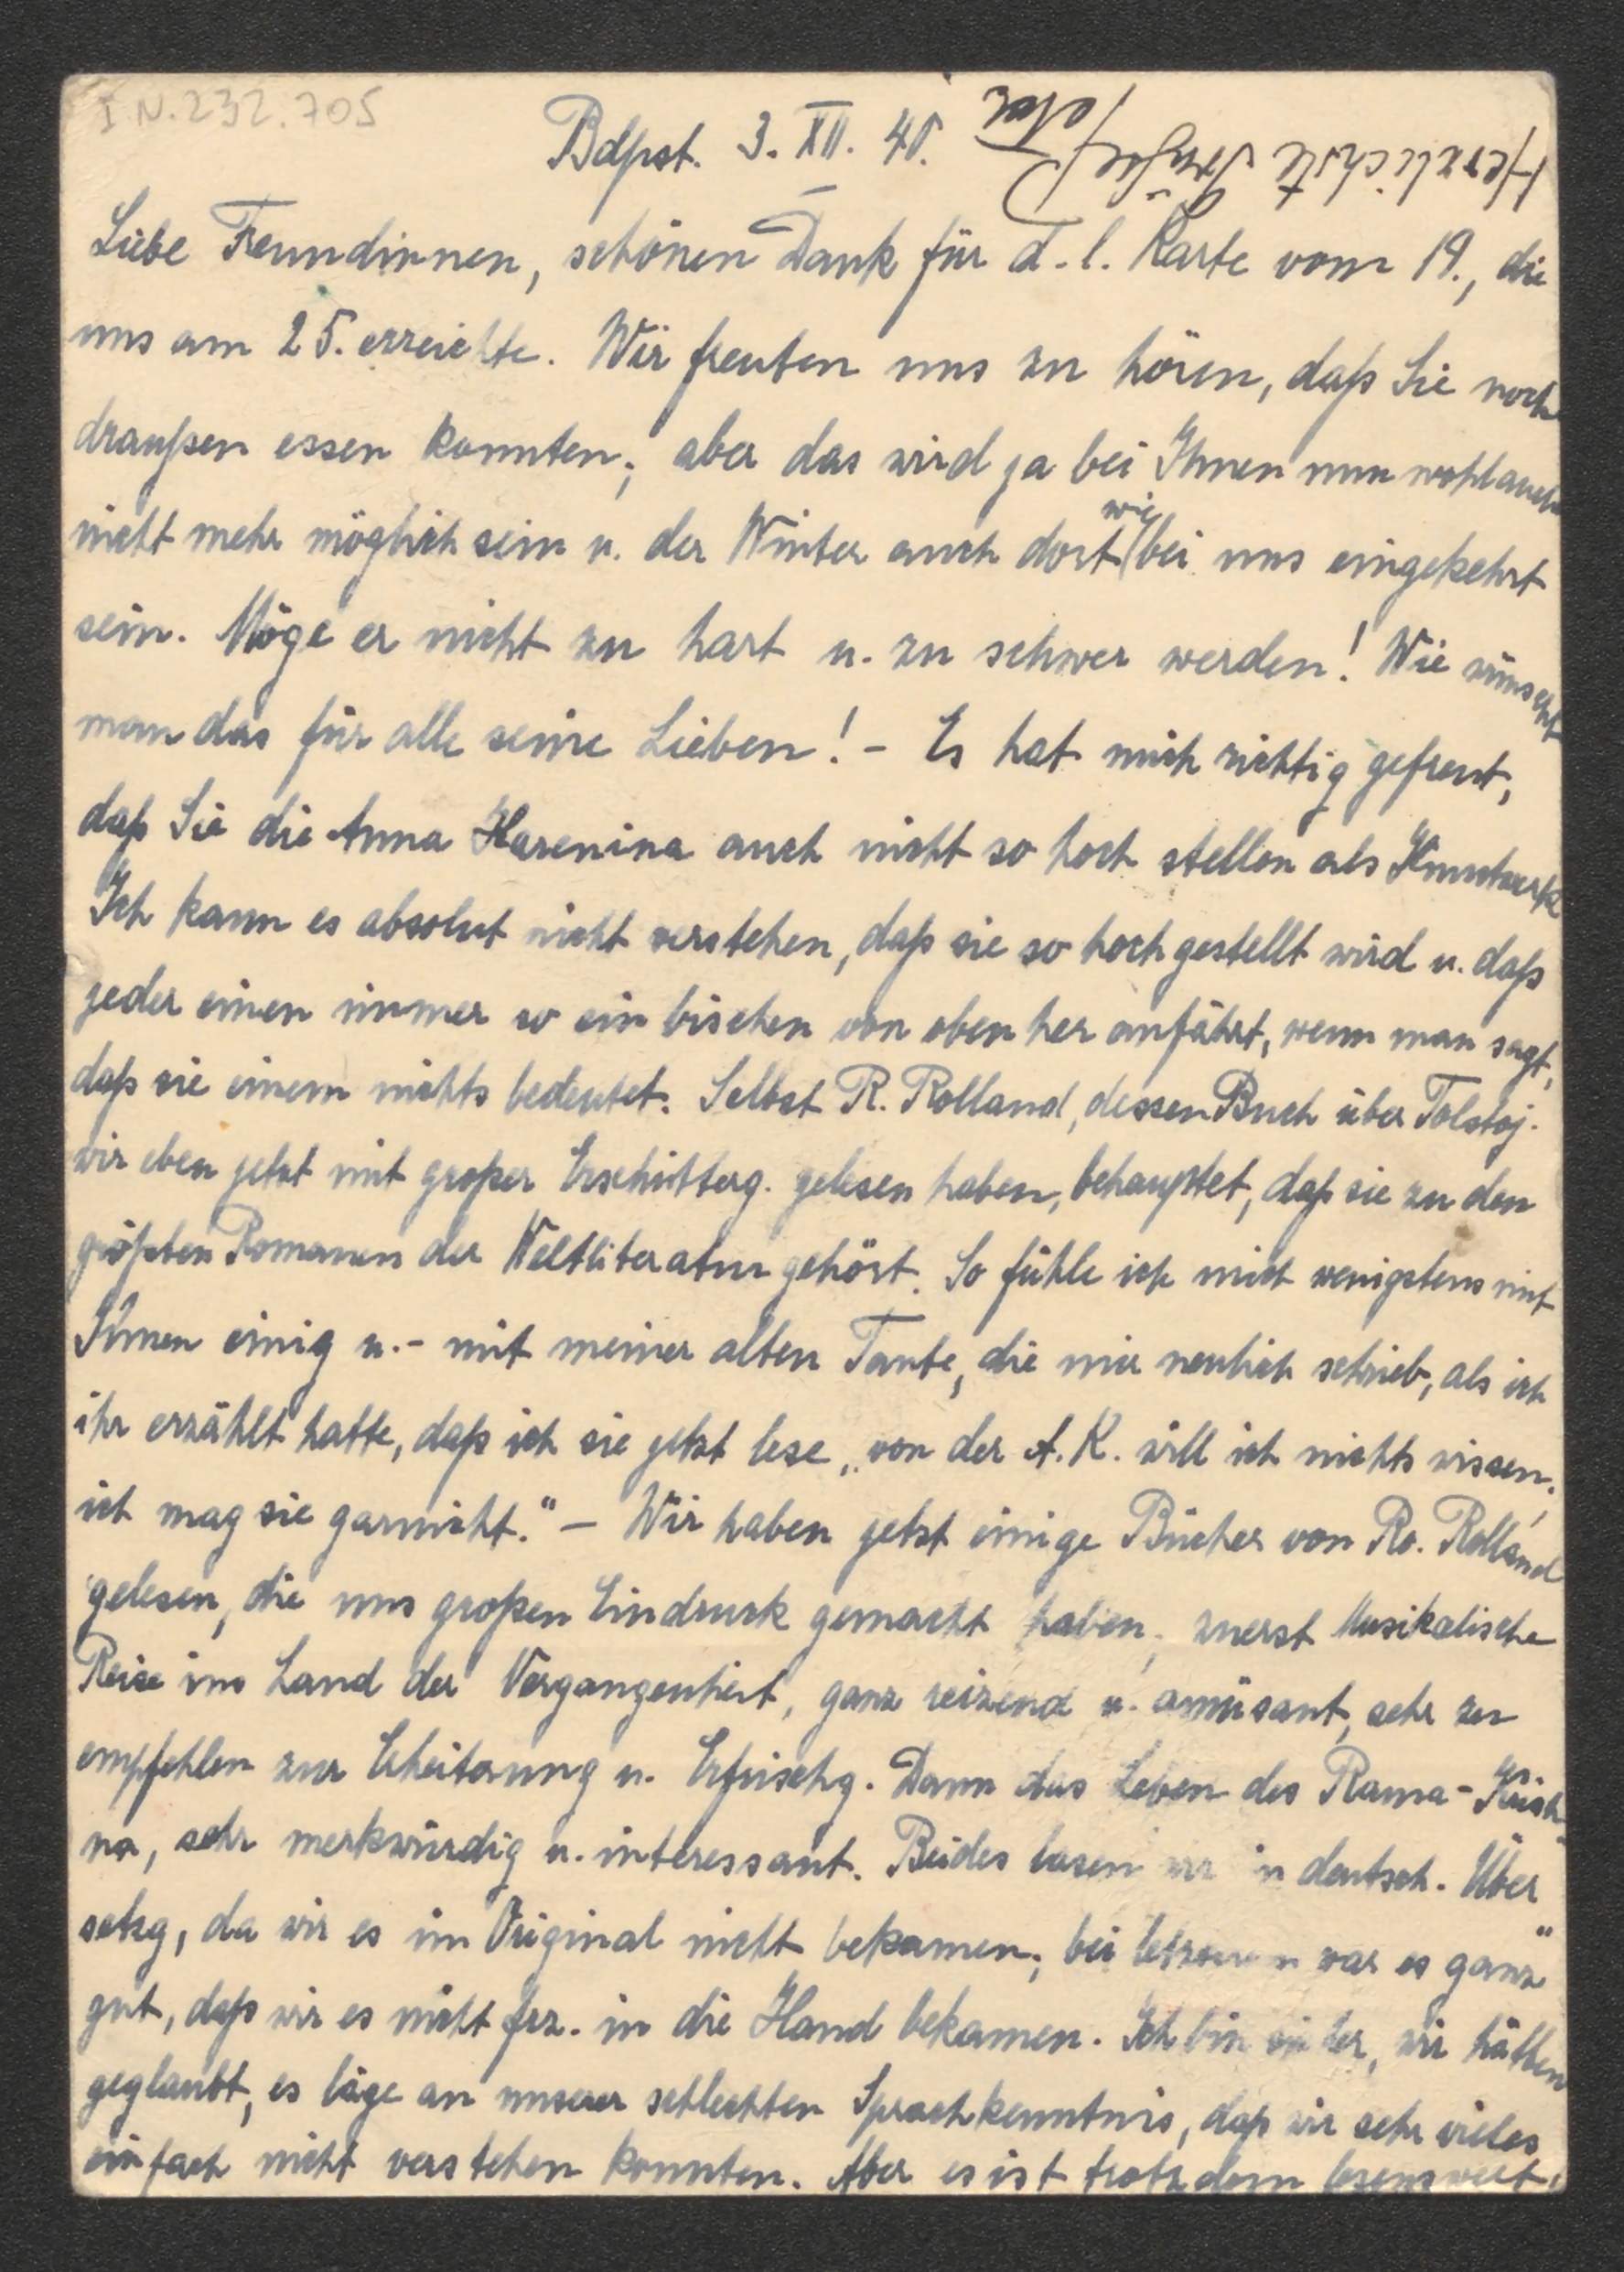 I N. 232.705
Bdpst. 3. XII. 40.
Herzlichste Grüße
Liebe Freundinnen, schönen Dank für d. l. Karte vom 19., die
uns am 25. erreichte. Wir freuten uns zu hören, daß Sie noch
draußen essen konnten; aber das wird ja bei Ihnen nun wohl auch
nicht mehr möglich sein u. der Winter auch dort wie bei uns eingekehrt
sein. Möge er nicht zu hart u. zu schwer werden! Wie wünscht
man das für alle seine Lieben! - Es hat mich richtig gefreut,
daß Sie die Anna Karenina auch nicht so hoch stellen als Kunstwerk
Ich kann es absolut nicht verstehen, daß sie so hoch gestellt wird u. daß
jeder einen immer so ein bischen von oben her anfährt, wenn man sagt,
daß sie einem nichts bedeutet. Selbst R. Rolland, dessen Buch über Tolstoj
wir eben jetzt mit großer Erschütterg. gelesen haben, behauptet, daß sie zu den
größten Romanen der Weltliteratur gehört. So fühle ich mich wenigstens mit
Ihnen einig u. - mit meiner alten Tante, die mir neulich schrieb, als ich
ihr erzählt hatte, daß ich sie jetzt lese „von der A. K. will ich nichts wissen,
ich mag sie garnicht." - Wir haben jetzt einige Bücher von Ro. Rolland
gelesen, die uns großen Eindruck gemacht haben; zuerst Musikalische
Reise ins Land der Vergangenheit, ganz reizend u. amüsant, sehr zu
empfehlen zur Erheiterung u. Erfrischg. Dann das Leben des Rama-Krish-
na, sehr merkwürdig u. interessant. Beides lasen wir in deutsch. Über
setzg, da wir es im Original nicht bekamen; bei letzterem war es ganz
gut, daß wir es nicht frz. in die Hand bekamen. Ich bin sicher, wir hätten
geglaubt, es läge an unserer schlechten Sprachkenntnis, daß wir sehr vieles
einfach nicht verstehen konnten. Aber es ist trotzdem lesenswert.